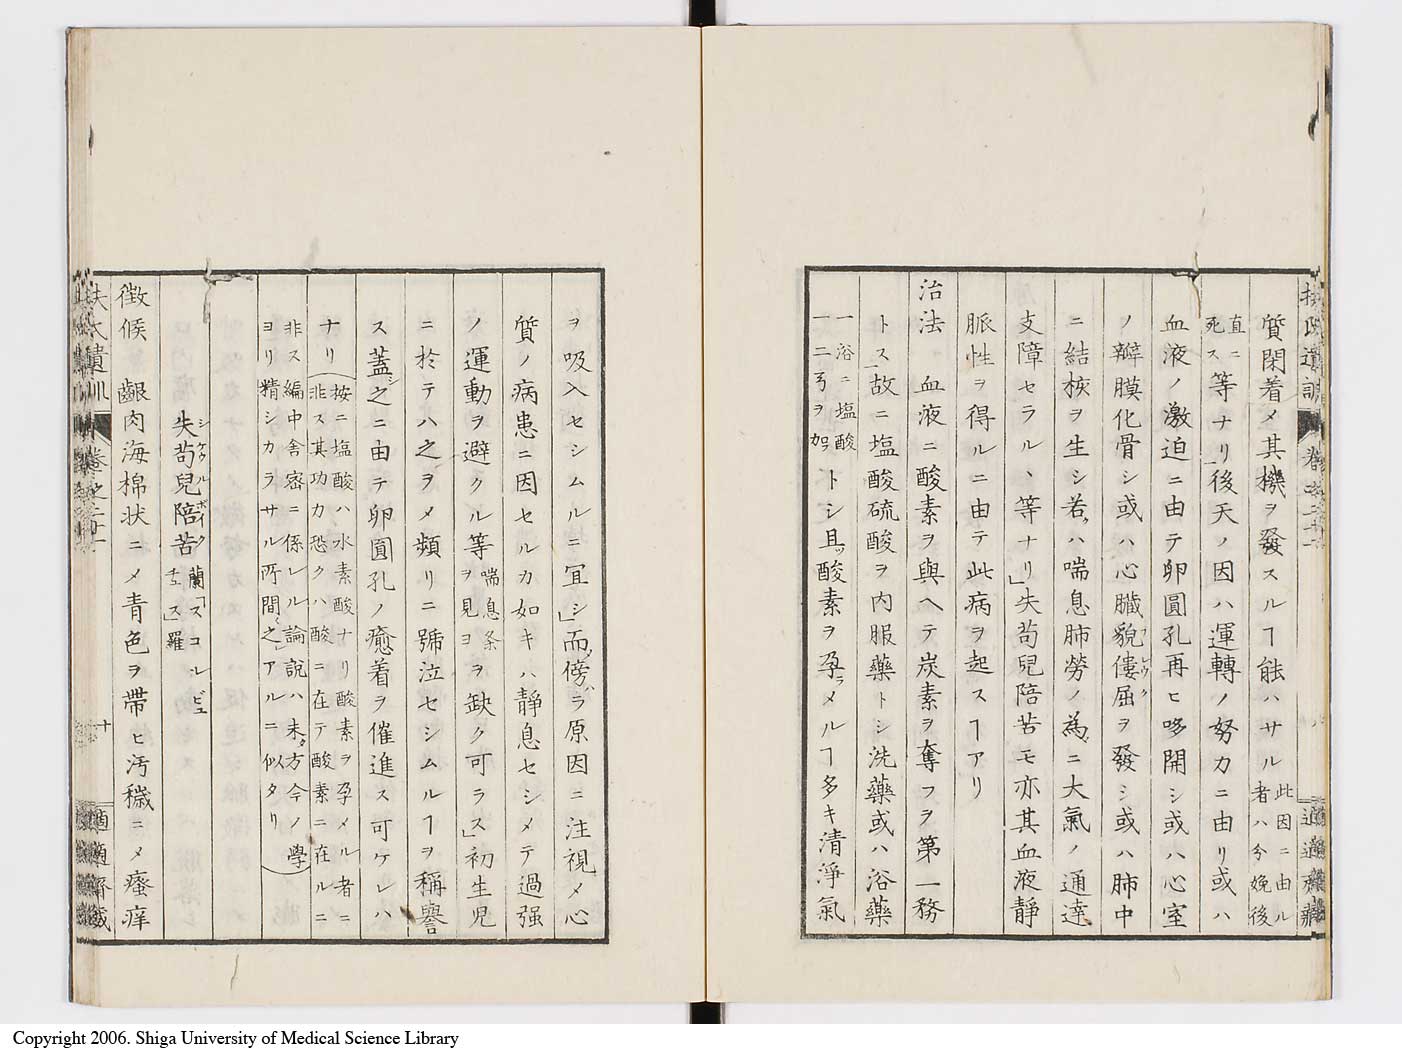 扶氏遺訓 卷之二十一 適適齋藏
質閉着メ其機ヲ發スルヿ能ハサル 此因ニ由ル者ハ分娩後
直ニ死ス 等ナリ」後天ノ因ハ運轉ノ努力ニ由リ或ハ
血液ノ激迫ニ由テ卵圓孔再ヒ哆開シ或ハ心室
ノ辨膜化骨シ或ハ心臓貌僂屈ヲ發シ或ハ肺中
ニ結核ヲ生シ若クハ喘息肺勞ノ為メニ大氣ノ通達
支障セラルヽ等ナリ」失苟兒陪苦モ亦其血液靜
脈性ヲ得ルニ由テ此病ヲ起スヿアリ
治法 血液ニ酸素ヲ與ヘテ炭素ヲ奪フヲ第一務
トス」故ニ塩酸硫酸ヲ内服藥トシ洗藥或ハ浴藥
一浴ニ塩酸一二弓ヲ加 トシ且ツ酸素ヲ孕ラメルヿ多キ清淨氣
ヲ吸入セシムルニ宜シ」而メ傍ハラ原因ニ注視メ心
質ノ病患ニ因セルカ如キハ靜息セシメテ過强
ノ運動ヲ避クル等 喘息条ヲ見ヨ ヲ缺ク可ラス」初生児
ニ於テハ之ヲメ頻リニ號泣セシムルヿヲ稱譽
ス蓋シ之ニ由テ卵圓孔ノ癒着ヲ催進ス可ケレハ
ナリ(按ニ塩酸ハ水素酸ナリ酸素ヲ孕メル者ニ
非ス其功力恐クハ酸ニ在テ酸素ニ在ルニ
非ス編中舎密ニ係レル論説ハ未タ方今ノ學
ヨリ精シカラサル所間々之」アルニ似タリ)
失苟兒陪苦 シケウルボイク 蘭「スコルビュチュス」羅
徴候 齦肉海棉状ニメ青色ヲ帶ヒ汚穢ニメ瘙痒
扶氏遺訓 卷之二十一 十 適適齋藏
Copyright 2006. Shiga University of Medical Science Library